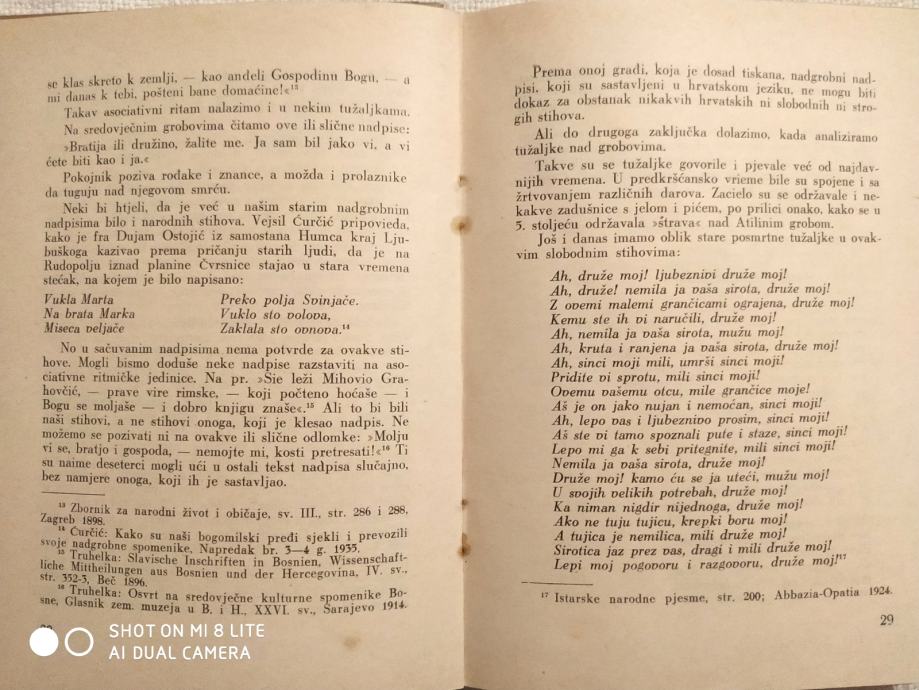 se klas skreto k zemlji, — kao anđeli Gospodinu Bogu, — a
mi danas k tebi, pošteni bane domaćine!«¹³
Takav asociativni ritam nalazimo i u nekim tužaljkama.
Na sredovječnim grobovima čitamo ove ili slične nadpise:
»Bratija ili družino, žalite me. Ja sam bil jako vi, a vi
ćete biti kao i ja.«
Pokojnik poziva rođake i znance, a možda i prolaznike
da tuguju nad njegovom smrću.
Neki bi htjeli, da je već u našim starim nadgrobnim
nadpisima bilo i narodnih stihova. Vejsil Ćurčić pripovieda,
kako je fra Dujam Ostojić iz samostana Humca kraj Lju-
buškoga kazivao prema pričanju starih ljudi, da je na
Rudopolju iznad planine Čvrsnice stajao u stara vremena
stećak, na kojem je bilo napisano:
Vukla Marta
Na brata Marka
Miseca veljače
Preko polja Svinjače.
Vuklo sto volova,
Zaklala sto ovnova.¹⁴
No u sačuvanim nadpisima nema potvrde za ovakve sti-
hove. Mogli bismo doduše neke nadpise razstaviti na aso-
ciativne ritmičke jedinice. Na pr. »Sie leži Mihovio Gra-
hovčić, — prave vire rimske, — koji počteno hoćaše — i
Bogu se moljaše — i dobro knjigu znaše«.¹⁵ Ali to bi bili
naši stihovi, a ne stihovi onoga, koji je klesao nadpis. Ne
možemo se pozivati ni na ovakve ili slične odlomke: »Molju
vi se, bratjo i gospoda, — nemojte mi, kosti pretresati!«¹⁶ Ti
su naime deseterci mogli ući u ostali tekst nadpisa slučajno,
bez namjere onoga, koji ih je sastavljao.
¹³ Zbornik za narodni život i običaje, sv. III., str. 286 i 288,
Zagreb 1898.
¹⁴ Ćurčić: Kako su naši bogomilski pređi sjekli i prevozili
svoje nadgrobne spomenike, Napredak br. 3—4 g. 1935.
¹⁵ Truhelka: Slavische Inschriften in Bosnien, Wissenschaft-
liche Mittheilungen aus Bosnien und der Hercegovina, IV. sv.,
str. 352-3, Beč 1896.
¹⁶ Truhelka: Osvrt na sredovječne kulturne spomenike Bo-
sne, Glasnik zem. muzeja u B. i H., XXVI. sv., Sarajevo 1914.
SHOT ON MI 8 LITE
AI DUAL CAMERA
Prema onoj građi, koja je dosad tiskana, nadgrobni nad-
pisi, koji su sastavljeni u hrvatskom jeziku, ne mogu biti
dokaz za obstanak nikakvih hrvatskih ni slobodnih ni stro-
gih stihova.
Ali do drugoga zaključka dolazimo, kada analiziramo
tužaljke nad grobovima.
Takve su se tužaljke govorile i pjevale već od najdav-
nijih vremena. U predkršćansko vrieme bile su spojene i sa
žrtvovanjem različnih darova. Zacielo su se održavale i ne-
kakve zadušnice s jelom i pićem, po prilici onako, kako se u
5. stoljeću održavala »štrava« nad Atilinim grobom.
Još i danas imamo oblik stare posmrtne tužaljke u ovak-
vim slobodnim stihovima:
Ah, druže moj! ljubeznivi druže moj!
Ah, druže! nemila ja vaša sirota, druže moj!
Z ovemi malemi grančicami ograjena, druže moj!
Kemu ste ih vi naručili, druže moj!
Ah, nemila ja vaša sirota, mužu moj!
Ah, kruta i ranjena ja vaša sirota, druže moj!
Ah, sinci moji mili, umrši sinci moji!
Pridite vi sprotu, mili sinci moji!
Ovemu vašemu otcu, mile grančice moje!
Aš je on jako nujan i nemoćan, sinci moji!
Ah, lepo vas i ljubeznivo prosim, sinci moji!
Aš ste vi tamo spoznali pute i staze, sinci moji!
Lepo mi ga k sebi pritegnite, mili sinci moji!
Nemila ja vaša sirota, druže moj!
Druže moj! kamo ću se ja uteći, mužu moj!
U svojih velikih potrebah, druže moj!
Ka niman nigdir nijednoga, druže moj!
Ako ne tuju tujicu, krepki boru moj!
A tujica je nemilica, mili druže moj!
Sirotica jaz prez vas, dragi i mili druže moj!
Lepi moj pogovoru i razgovoru, druže moj!¹⁷
¹⁷ Istarske narodne pjesme, str. 200; Abbazia-Opatia 1924.
29